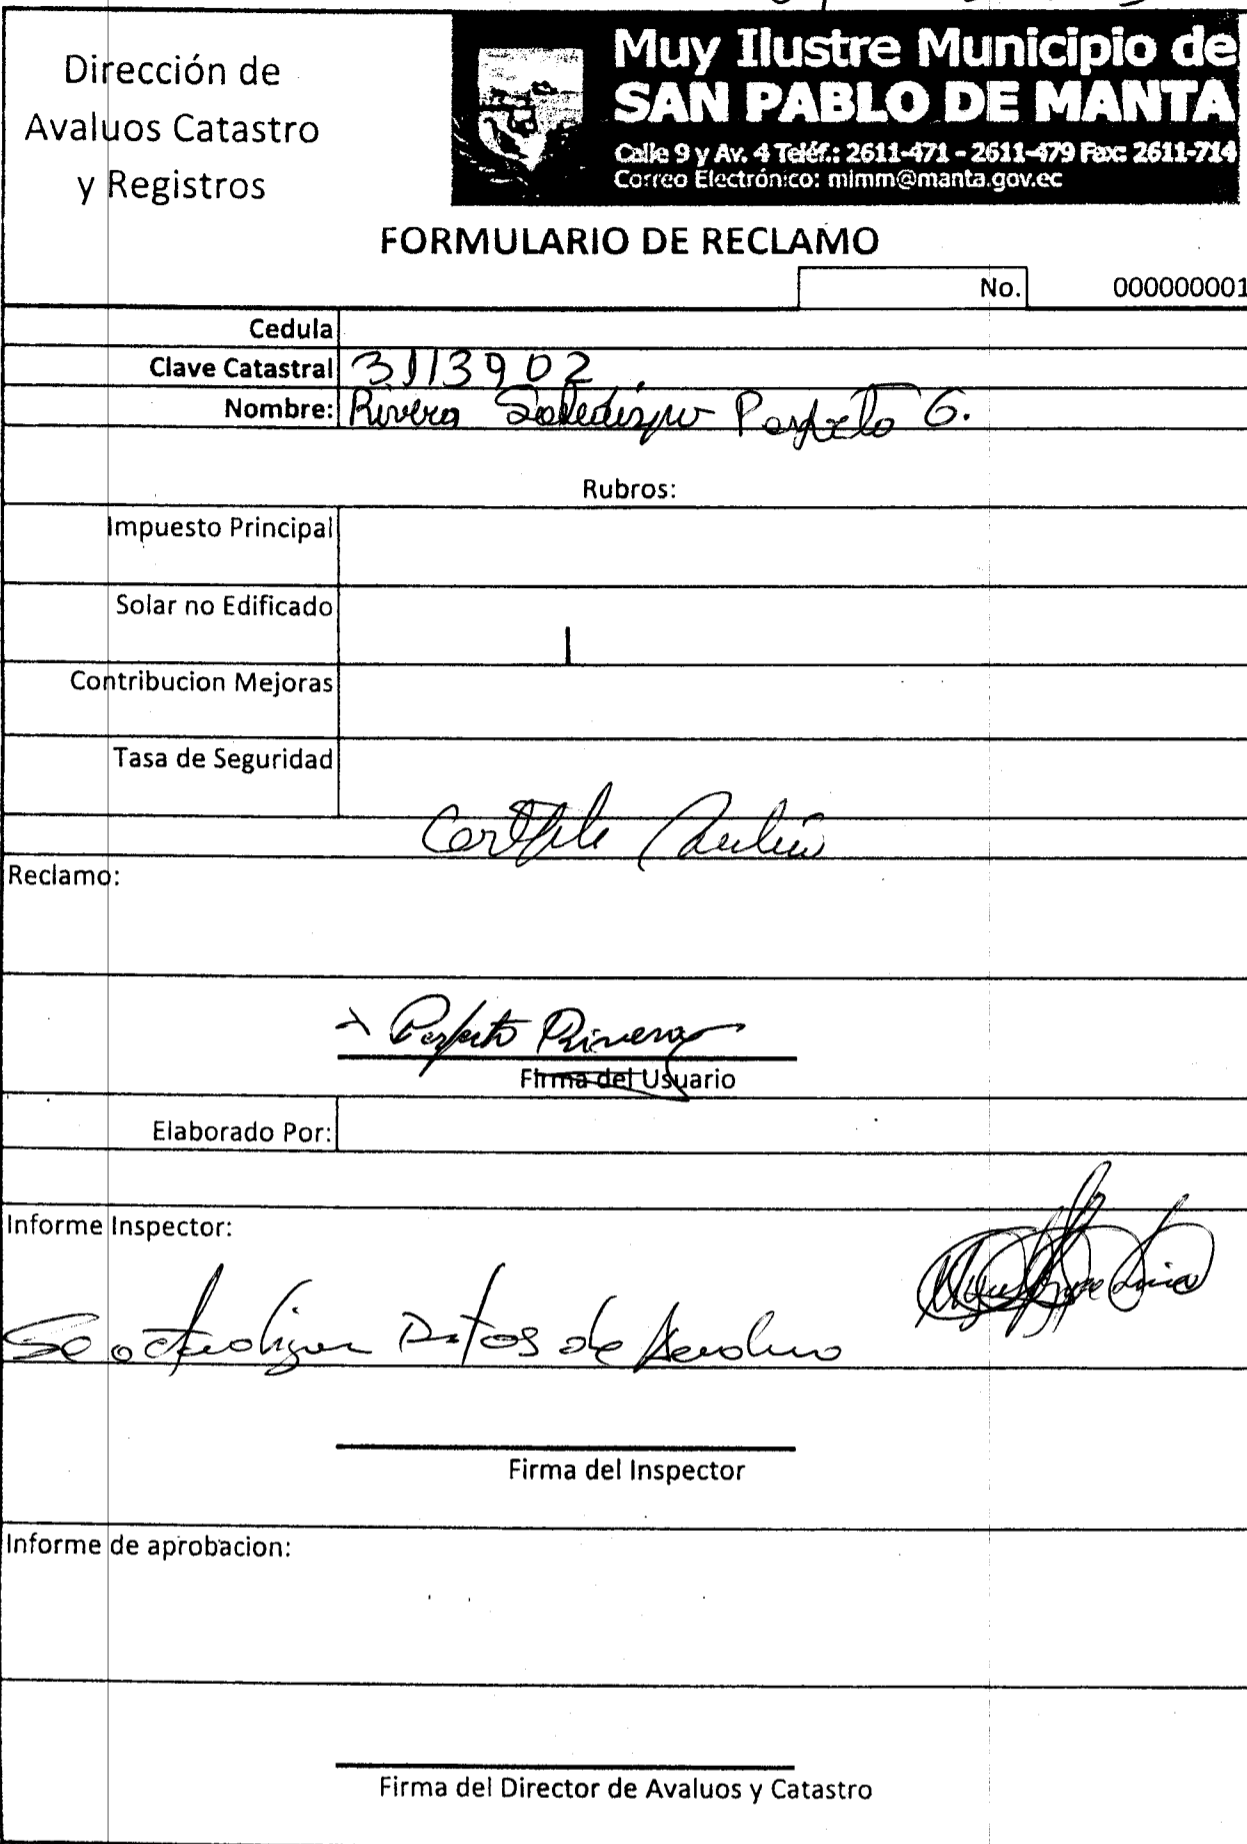 Dirección de
Avaluos Catastro
y Registros
Muy Ilustre Municipio de
SAN PABLO DE MANTA
Calle 9 y Av. 4 Teléf.: 2611-471 - 2611-479 Fax: 2611-714
Correo Electrónico: mimm@manta.gov.ec
FORMULARIO DE RECLAMO
No. 000000001
Cedula
Clave Catastral 3113902
Nombre: Rivera Perfecto G.
Rubros:
Impuesto Principal
Solar no Edificado
Contribucion Mejoras
Tasa de Seguridad
Reclamo:
Perfecto Rivera
Firma del Usuario
Elaborado Por:
Informe Inspector:
Se Datos de
Firma del Inspector
Informe de aprobacion:
Firma del Director de Avaluos y Catastro